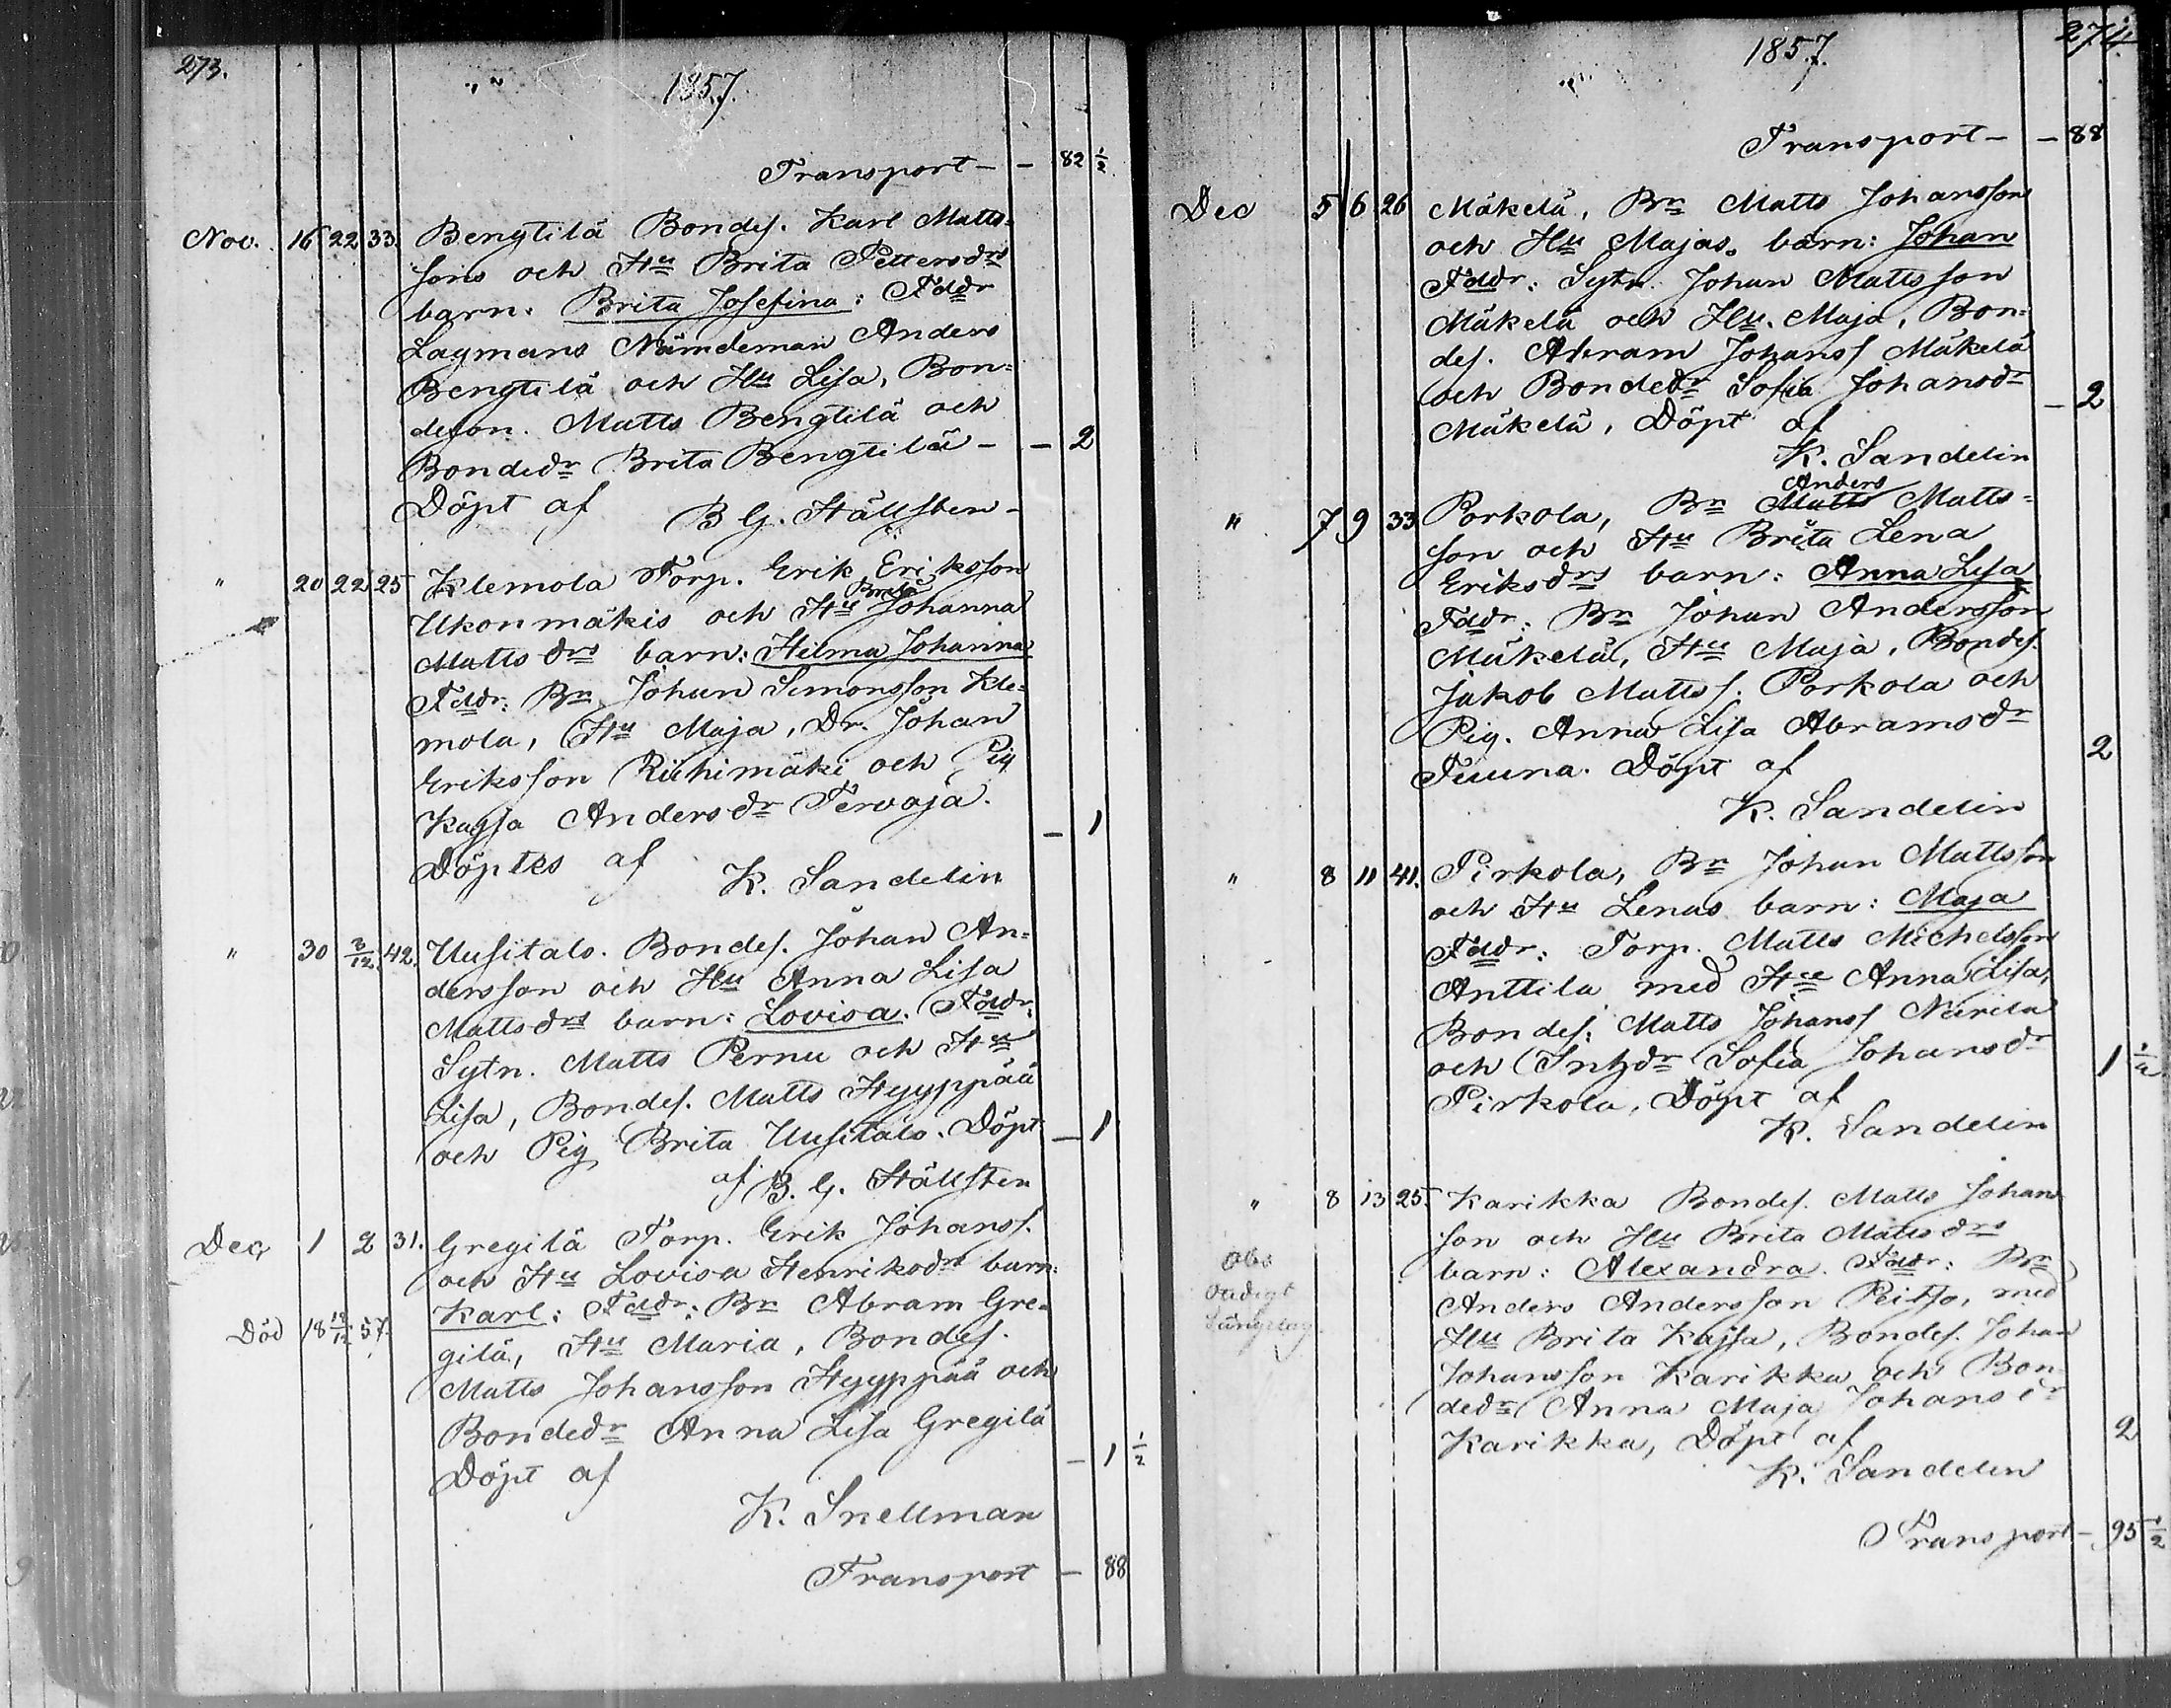 273.
1857.
Transport — — 82 1/2
Nov. 16 22 33. Bengtilä Bondes. Karl Matts-
sons och Hu Brita Pettersdrs
barn: Brita Josefina: Faddr
Lagmans Nämdeman Anders
Bengtilä och Hu Lisa, Bon-
deson. Matts Bengtilä och
Bondedr Brita Bengtilä — — 2
Döpt af B G. Hällsten —
" 20 22 25 Klemola Torp. Erik Eriksson
Brita
Ukonmäkis och Hu Johanna
Mattsdrs barn: Hilma Johanna
Faddr: Bn Johan Simonsson Kle-
mola, Hu Maja, Dr. Johan
Eriksson Riihimäki och Pig
Kajsa Andersdr Tervoja. — 1
Döptes af K. Sandelin
" 30 3/12 42. Uusitalo. Bondes. Johan An-
dersson och Hu Anna Lisa
Mattsdrs barn: Lovisa. Faddr:
Sytn. Matts Pernu och Hu
Lisa, Bondes. Matts Hyyppää
och Pig Brita Uusitalo. Döpt — 1
af B. G. Hällsten
Dec 1 2 31. Gregilä Torp. Erik Johanss.
och Hu Lovisa Henriksdrs barn:
Karl: Faddr: Bn Abram Gre-
Död 18 12/12 57. gilä, Hu Maria, Bondes.
Matts Johansson Hyyppää och
Bondedr Anna Lisa Gregilä
Döpt af — 1 1/2
K. Snellman
Transport — 88
274.
1857.
Transport — — 88
Dec 5 6 26 Mäkelä, Bn Matts Johansson
och Hu Majas. barn: Johan
Faddr: Sytn. Johan Mattsson
Mäkelä och Hu. Maja, Bon-
des. Abram Johanss Mäkelä
och Bondedr Sofia Johansdr — 2
Mäkelä, Döpt af
K. Sandelin
Anders
" 7 9 33 Porkola, Bn Matts Matts-
son och Hu Brita Lena
Eriksdrs barn: Anna Lisa
Faddr: Bn Johan Andersson
Mäkelä, Hu Maja, Bondes.
Jakob Matts s. Porkola och
Pig. Anna Lisa Abramsdr
Tuuna. Döpt af 2
K. Sandelin
" 8 11 41. Pirkola, Bn Johan Mattsson
och Hu Lenas barn: Maja
Faddr: Torp. Matts Michelsson
Anttila med Hu Anna Lisa,
Bondes: Matts Johanss Närilä
och Inhdr Sofia Johansdr 1 1/2
Pirkola, Döpt af
K. Sandelin
" 8 13 25. Karikka Bondes. Matts Johan
son och Hu Brita Mattsdrs
Obs barn: Alexandra. Faddr: Bn
Anders Andersson Peitso, med
Hu Brita Kajsa, Bondes. Johan
Johansson Karikka och Bon-
dedr Anna Maja Johansdr
Karikka, Döpt af 2
K. Sandelin
Transport — 95 1/2